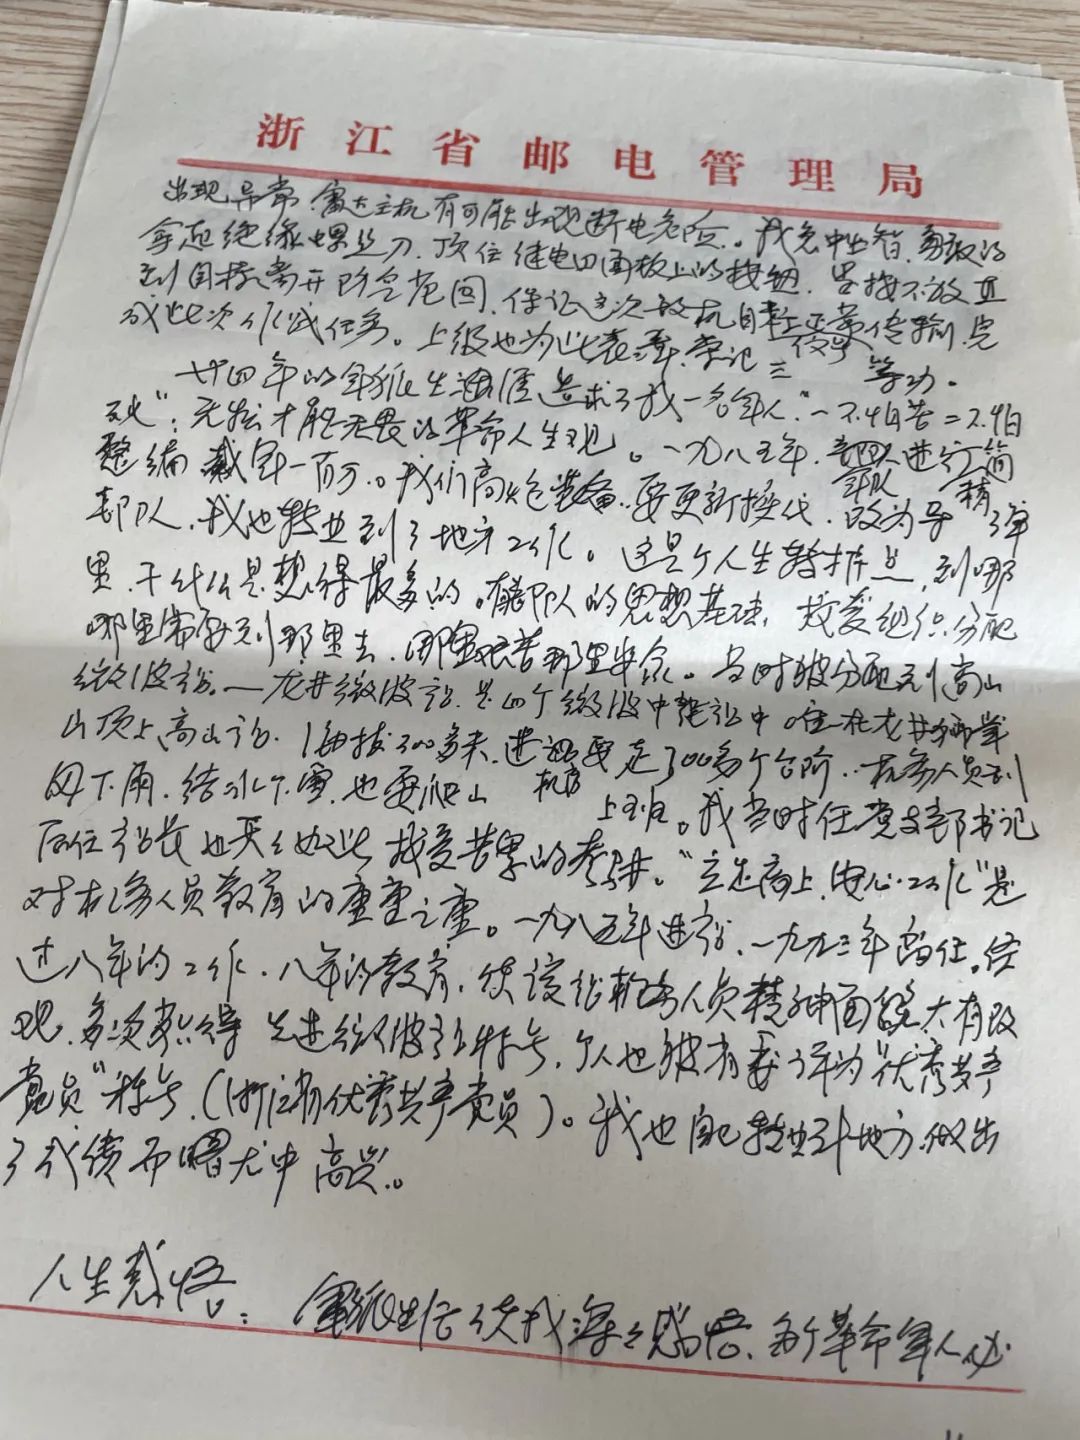 浙江省邮电管理局
出现异常,雷达主机有可能出现断电危险。我急中生智,勇敢的
拿起绝缘螺丝刀,顶住继电四面板上的按钮,紧按不放直
到目标离开防空范围,保证这次敌机目标正常传输,完
成此次作战任务。上级也为此表彰,荣记三等功。
廿四年的军旅生涯造就了我一名军人"一不怕苦二不怕
死",无私才能无畏的革命人生观。一九八五年,部队进行精简
整编,裁军一百万。我们高炮装备,要更新换代,改为导弹
部队,我也转业到了地方工作。这是个人生转折点,到哪
里,干什么是想得最多的。有部队的思想基础,接受组织分配
哪里需要到那里去,哪里艰苦那里安家。当时被分配到高山
微波站。—龙井微波站是四个微波中继站中唯一在龙井
山顶上高山站,海拔300多米,进站要走700多个台阶,机务人员到
机房上班。
因下雨,结冰下雪,也要爬山
我当时任党支部书记
后任站长也天天如此接受苦累的考验。"立足高山,安心工作"是
对机务人员教育的重重之重。一九八五年进站,一九九三年离任。经
过八年的工作,八年的教育,使该站机务人员精神面貌大有改
观,多次获得先进微波站称号,个人也被省委评为"优秀共产
党员"称号,(浙江省优秀共产党员)。我也自己转业到地方,做出
了成绩而高兴。
人生感悟:军旅生活使我深深感悟,每个革命军人必